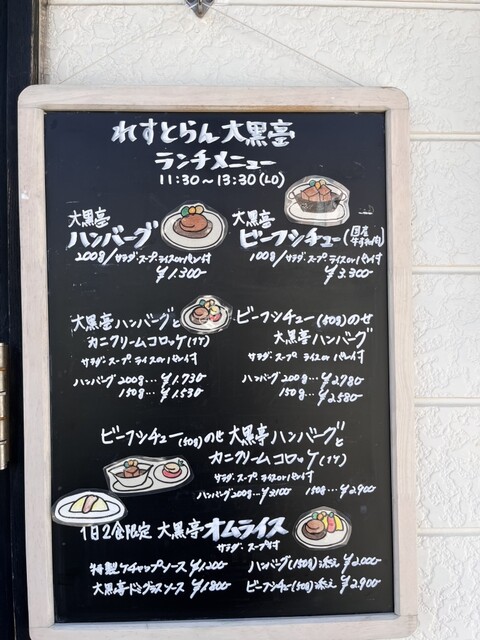 れすとらん大黒亭
ランチメニュー
11:30～13:30(LO)
大黒亭
ハンバーグ
200g/サラダ・スープ、ライスorパン付
¥1.300-
大黒亭
ビーフシチュー(国産牛すね肉)
100g/サラダ・スープ、ライスorパン付
¥3.300-
大黒亭ハンバーグと
カニクリームコロッケ(1ケ)
サラダ・スープ ライスorパン付
ハンバーグ200g…¥1.730-
150g…¥1.530-
ビーフシチュー(50g)のせ
大黒亭ハンバーグ
サラダ・スープ ライスorパン付
ハンバーグ200g…¥2780-
150g…¥2580-
ビーフシチュー(50g)のせ大黒亭ハンバーグと
カニクリームコロッケ(1ケ)
サラダ・スープ ライスorパン付
ハンバーグ200g…¥3100- 150g…¥2900-
1日2食限定 大黒亭オムライス
サラダ・スープ付
特製ケチャップソース ¥1,200-
大黒亭ドミグラスソース ¥1800-
ハンバーグ(150g)添え ¥2000-
ビーフシチュー(50g)添え ¥2,900-